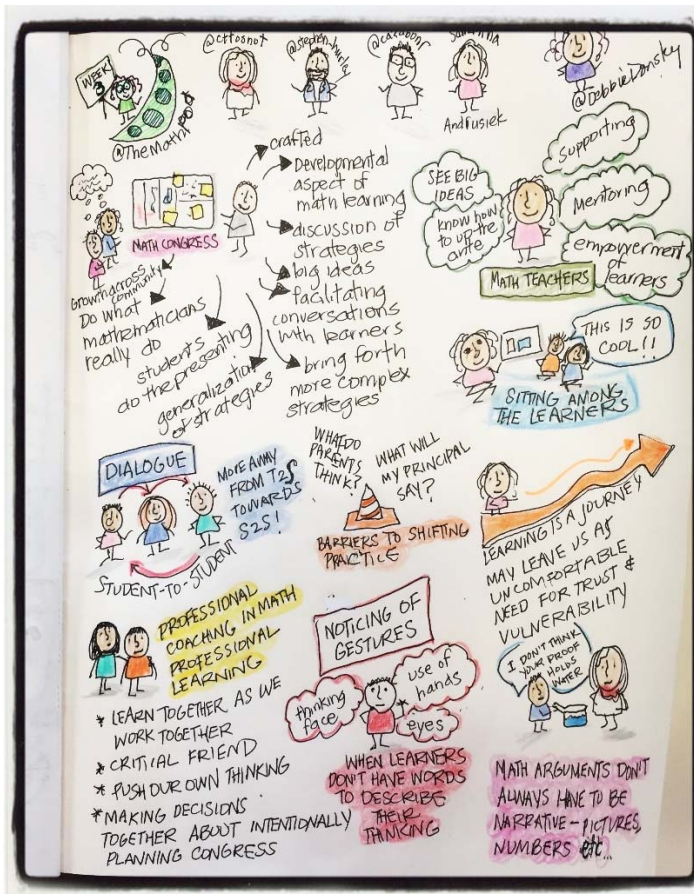 WEEK
3
@TheMathPod
@cttosnot
@stephen_hurley
Andrusiek
@DebbieDonsky
MATH CONGRESS
crafted
Developmental
aspect of
math learning
discussion of
strategies
big ideas
facilitating
conversations
with learners
bring forth
more complex
strategies
Growth across
community
Do what
mathematicians
really do
students
do the presenting
generalization
of strategies
SEE BIG
IDEAS
know how
to up the
ante
supporting
Mentoring
empowerment
of
learners
MATH TEACHERS
THIS IS SO
COOL!!
SITTING AMONG
THE LEARNERS
DIALOGUE
MOVE AWAY
FROM T2S
TOWARDS
S2S!
STUDENT-TO-STUDENT
WHAT DO
PARENTS
THINK?
WHAT WILL
MY PRINCIPAL
SAY?
BARRIERS TO SHIFTING
PRACTICE
LEARNING IS A JOURNEY
MAY LEAVE US AS
UNCOMFORTABLE
NEED FOR TRUST &
VULNERABILITY
PROFESSIONAL
COACHING IN MATH
PROFESSIONAL
LEARNING
* LEARN TOGETHER AS WE
WORK TOGETHER
* CRITICAL FRIEND
* PUSH OUR OWN THINKING
* MAKING DECISIONS
TOGETHER ABOUT INTENTIONALLY
PLANNING CONGRESS
NOTICING OF
GESTURES
thinking
face
use of
hands
eyes
WHEN LEARNERS
DON'T HAVE WORDS
TO DESCRIBE
THEIR
THINKING
I DON'T THINK
YOUR PROOF
HOLDS
WATER
MATH ARGUMENTS DON'T
ALWAYS HAVE TO BE
NARRATIVE - PICTURES,
NUMBERS etc...